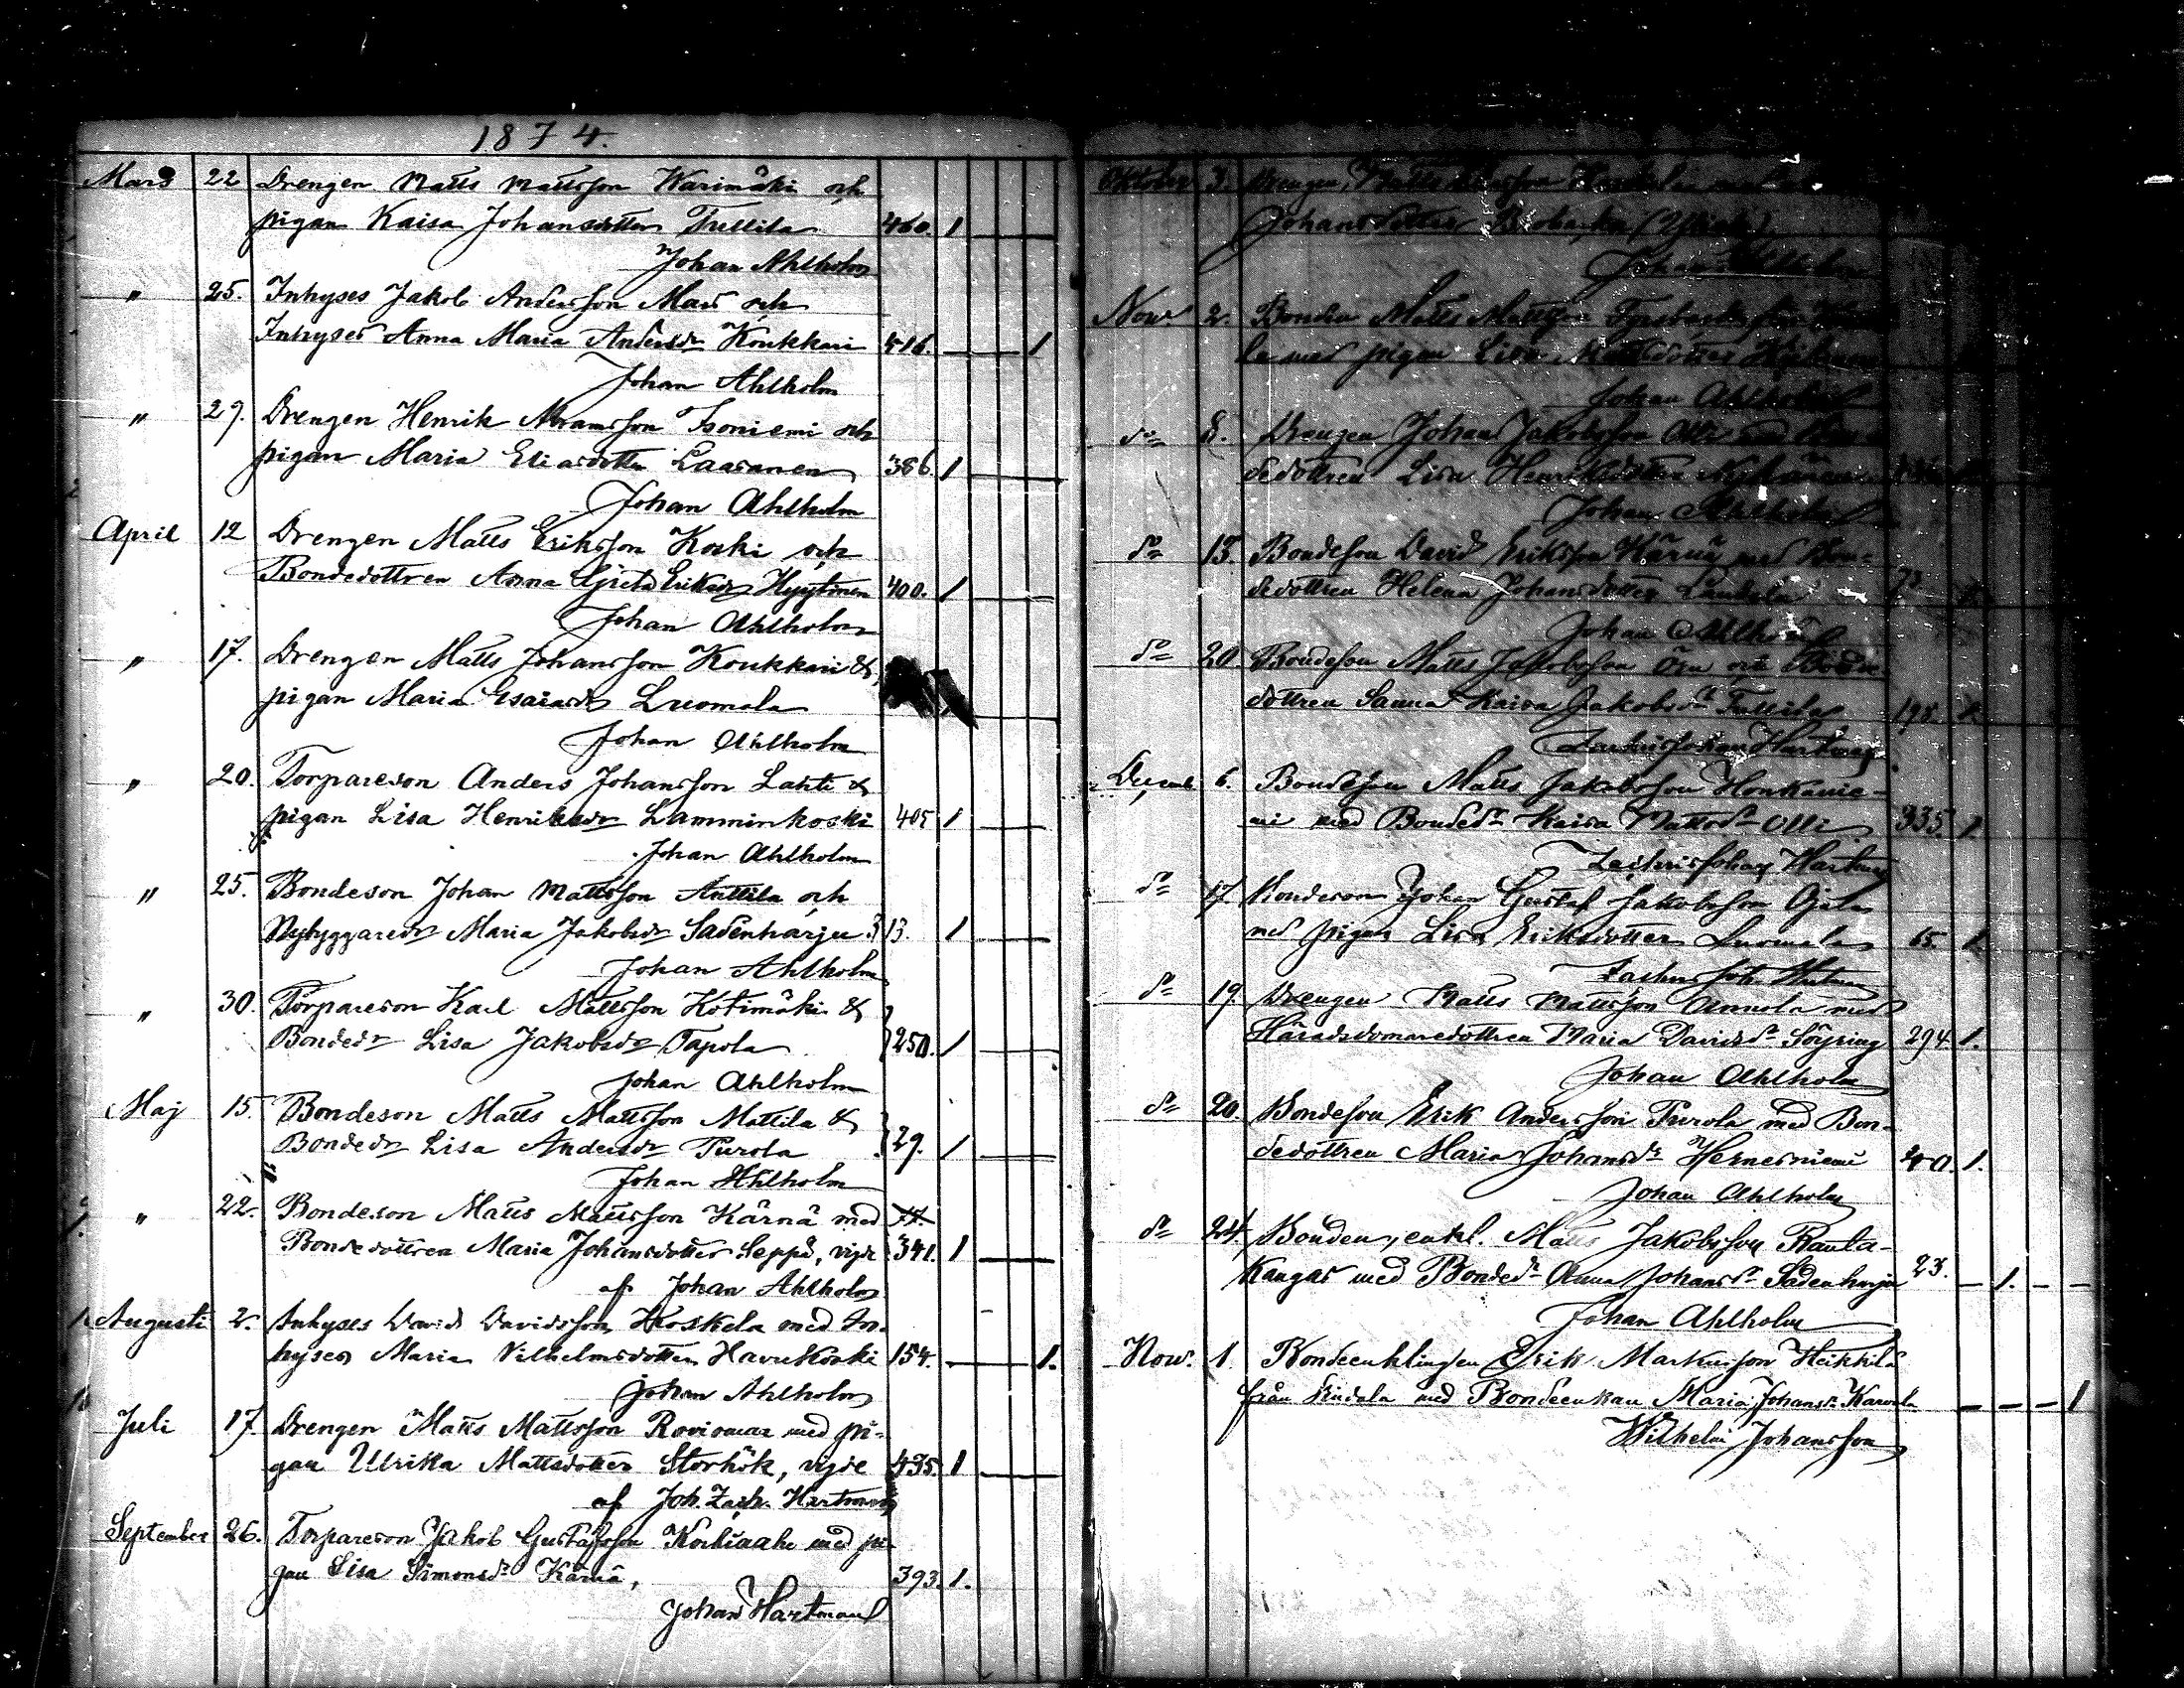 1874.
Mars 22 Drengen Matts Mattsson Warimäki och
pigan Kaisa Johansdotter Trellila 460. 1
Johan Ahlholm
" 25. Inhyses Jakob Andersson Mars och
Inhyses Anna Maria Andersdr Koukkari 416. 1
Johan Ahlholm
" 29. Drengen Henrik Abramsson Isoniemi och
pigan Maria Eliasdotter Laasanen 386. 1
Johan Ahlholm
April 12 Drengen Matts Eriksson Koski och
Bondedottren Anna Greta Eriksdr Hyytinen 400. 1
Johan Ahlholm
" 17. Drengen Matts Johansson Koukkari &
pigan Maria Esaiasdr Luomala
Johan Ahlholm
" 20. Torpareson Anders Johansson Lahti &
pigan Lisa Henriksdr Lamminkoski 405 1
Johan Ahlholm
" 25. Bondeson Johan Mattsson Anttila och
Nybyggaredr Maria Jakobsdr Sadenharju 313. 1
Johan Ahlholm
" 30. Torpareson Karl Mattsson Kotimäki &
Bondedr Lisa Jakobsdr Tapola 250. 1
Johan Ahlholm
Maj 15. Bondeson Matts Mattsson Mattila &
Bondedr Lisa Andersdr Purola 29. 1
Johan Ahlholm
" 22. Bondeson Matts Mattsson Kärnä med
Bondedottren Maria Johansdotter Seppä, vigde 341. 1
af Johan Ahlholm
Augusti 2. Inhyses David Davidsson Koskela med In-
hyses Maria Vilhelmsdotter Havukoski 154. 1.
Johan Ahlholm
Juli 17. Drengen Matts Mattsson Roviomaa med pi-
gan Ulrika Mattsdotter Storhök, vigde 435. 1
af Joh. Zach. Hartman
September 26. Torpareson Jakob Gustafsson Korkiaaho med pi-
gan Lisa Simonsdr Kärnä, 393. 1.
Johan Hartman
Oktober 3. Drengen Matts
Johansdotter
Johan Ahlholm
Nov. 2. Bonden Matts Mattsson
la med pigan Lisa Mattsdotter
Johan Ahlholm
do 8. Drengen Johan Jakobsson Olli med Bon-
dedottren Lisa Henriksdotter
Johan Ahlholm
do 15. Bondeson David Eriksson Kärnä med Bon-
dedottren Helena Johansdotter 73
Johan Ahlholm
do 20 Bondeson Matts Jakobsson Örn och Bonde
dottren Sanna Kaisa Jakobsdr Tullila 198. 1.
Zachris Johan Hartman
Decemb 6. Bondeson Matts Jakobsson Honkanie-
mi med Bondedr Kaisa Mattsdr Olli 335. 1.
Zachris Johan Hartman
do 17. Bondeson Johan Gustaf Jakobsson Ojala
med pigan Lisa Eriksdotter Luomala 65. 1.
Zachris Joh. Hartman
do 19. Drengen Matts Mattsson Annola med
Häradsdomaredottren Maria Davidsdr Söyring 294. 1.
Johan Ahlholm
do 20. Bondeson Erik Andersson Purola med Bon-
dedottren Maria Johansdr Hernesniemi 1.
Johan Ahlholm
do 24. Bonden, enkl. Matts Jakobsson Ranta-
kangas med Bondedr Anna Johansdr Sadenharju 23. 1.
Johan Ahlholm
Nov. 1. Bondeenklingen Erik Markusson Heikkilä
från Lindala med Bondeenkan Maria Johansdr Karvala 1
Wilhelm Johansson